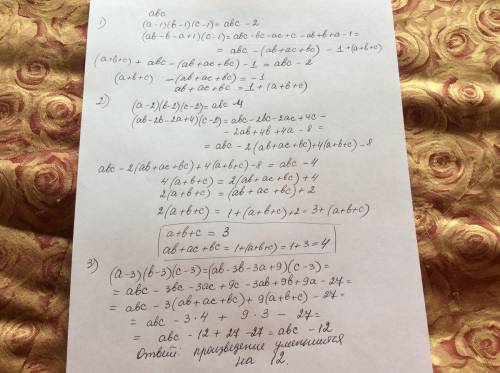 abc
1) (a-1)(b-1)(c-1) = abc - 2
(ab-b-a+1)(c-1) = abc-bc-ac+c-ab+b+a-1 =
= abc - (ab+ac+bc) - 1 + (a+b+c)
(a+b+c) + abc - (ab+ac+bc) - 1 = abc - 2
(a+b+c) - (ab+ac+bc) = -1
ab+ac+bc = 1 + (a+b+c)
2) (a-2)(b-2)(c-2) = abc - 4
(ab-2b-2a+4)(c-2) = abc-2bc-2ac+4c-
- 2ab+4b+4a-8 =
= abc - 2(ab+ac+bc)+4(a+b+c) - 8
abc - 2(ab+ac+bc) + 4(a+b+c) - 8 = abc - 4
4(a+b+c) = 2(ab+ac+bc) + 4
2(a+b+c) = (ab+ac+bc) + 2
2(a+b+c) = 1+(a+b+c)+2 = 3+(a+b+c)
a+b+c = 3
ab+ac+bc = 1+(a+b+c) = 1+3 = 4
3) (a-3)(b-3)(c-3) = (ab-3b-3a+9)(c-3) =
= abc - 3bc - 3ac + 9c - 3ab + 9b + 9a - 27 =
= abc - 3(ab+ac+bc) + 9(a+b+c) - 27 =
= abc - 3·4 + 9·3 - 27 =
= abc - 12 + 27 - 27 = abc - 12
Ответ: произведение уменьшится
на 12.